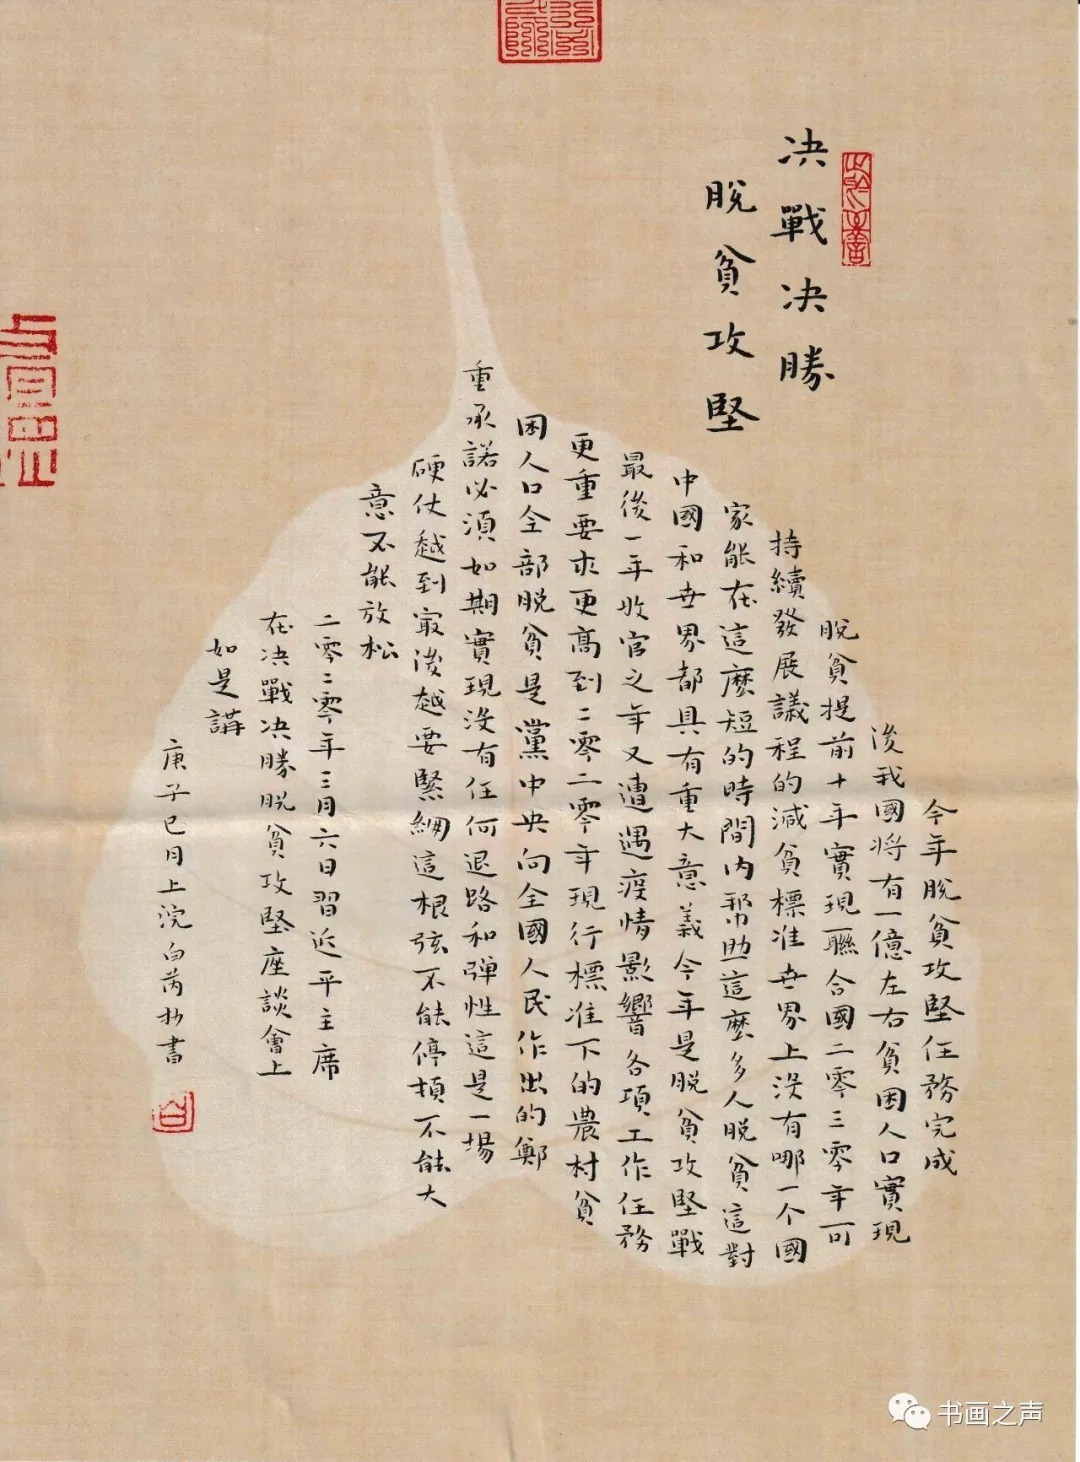 决戰决勝
脫貧攻堅
今年脫貧攻堅任務完成
後我國将有一億左右貧困人口實現
脫貧提前十年實現聯合國二零三零年可
持續發展議程的減貧標准世界上没有哪一个國
家能在這麽短的時間内幫助這麽多人脫貧這對
中國和世界都具有重大意義今年是脫貧攻堅戰
最後一年收官之年又遭遇疫情影響各項工作任務
更重要求更高到二零二零年現行標准下的農村貧
困人口全部脫貧是黨中央向全國人民作出的鄭
重承諾必須如期實現没有任何退路和弹性這是一場
硬仗越到最後越要緊綳這根弦不能停頓不能大
意不能放松
二零二零年三月六日習近平主席
在决戰决勝脫貧攻堅座談會上
如是講
庚子巳月上浣白芮抄書
书画之声